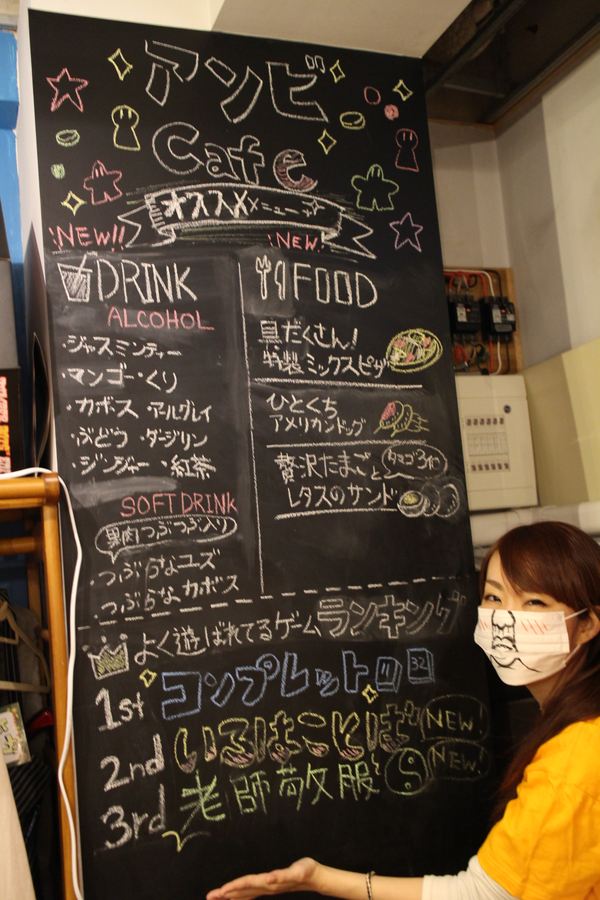 アソビ
Cafe
オススメメニュー
NEW!!
NEW!
DRINK
ALCOHOL
・ジャスミンティー
・マンゴー ・くり
・カボス ・アールグレイ
・ぶどう ・ダージリン
・ジンジャー ・紅茶
SOFT DRINK
果肉つぶつぶ入り
・つぶらなユーズ
・つぶらなカボス
FOOD
具だくさん!
特製ミックスピザ
ひとくち
アメリカンドッグ
贅沢たまごと
タマゴ3個
レタスのサンド
よく遊ばれてるゲームランキング
1st コンプレット 32
2nd いろはことば NEW!
3rd 老師敬服 NEW!